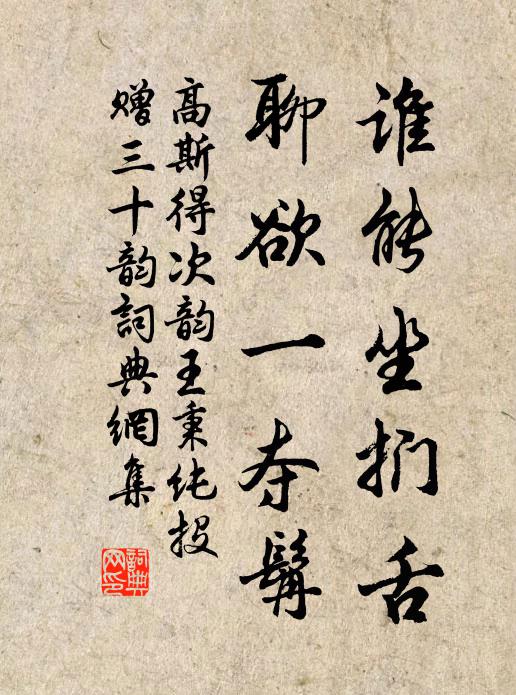 谁能坐扪舌
聊欲一夺髯
高斯得次韵王秉纯投
赠三十韵詞典網集
詞典网印